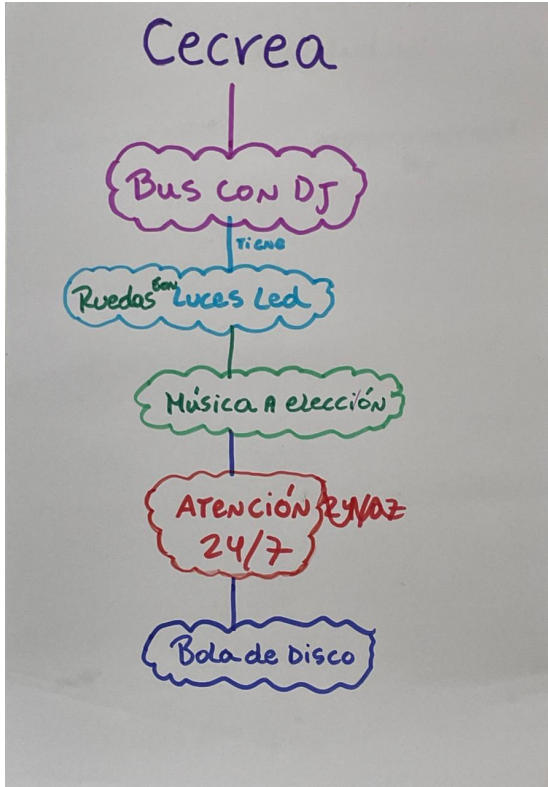 Cecrea
Bus con DJ
Tiene
Ruedas con Luces Led
Música A elección
Atención
24/7
Bola de Disco